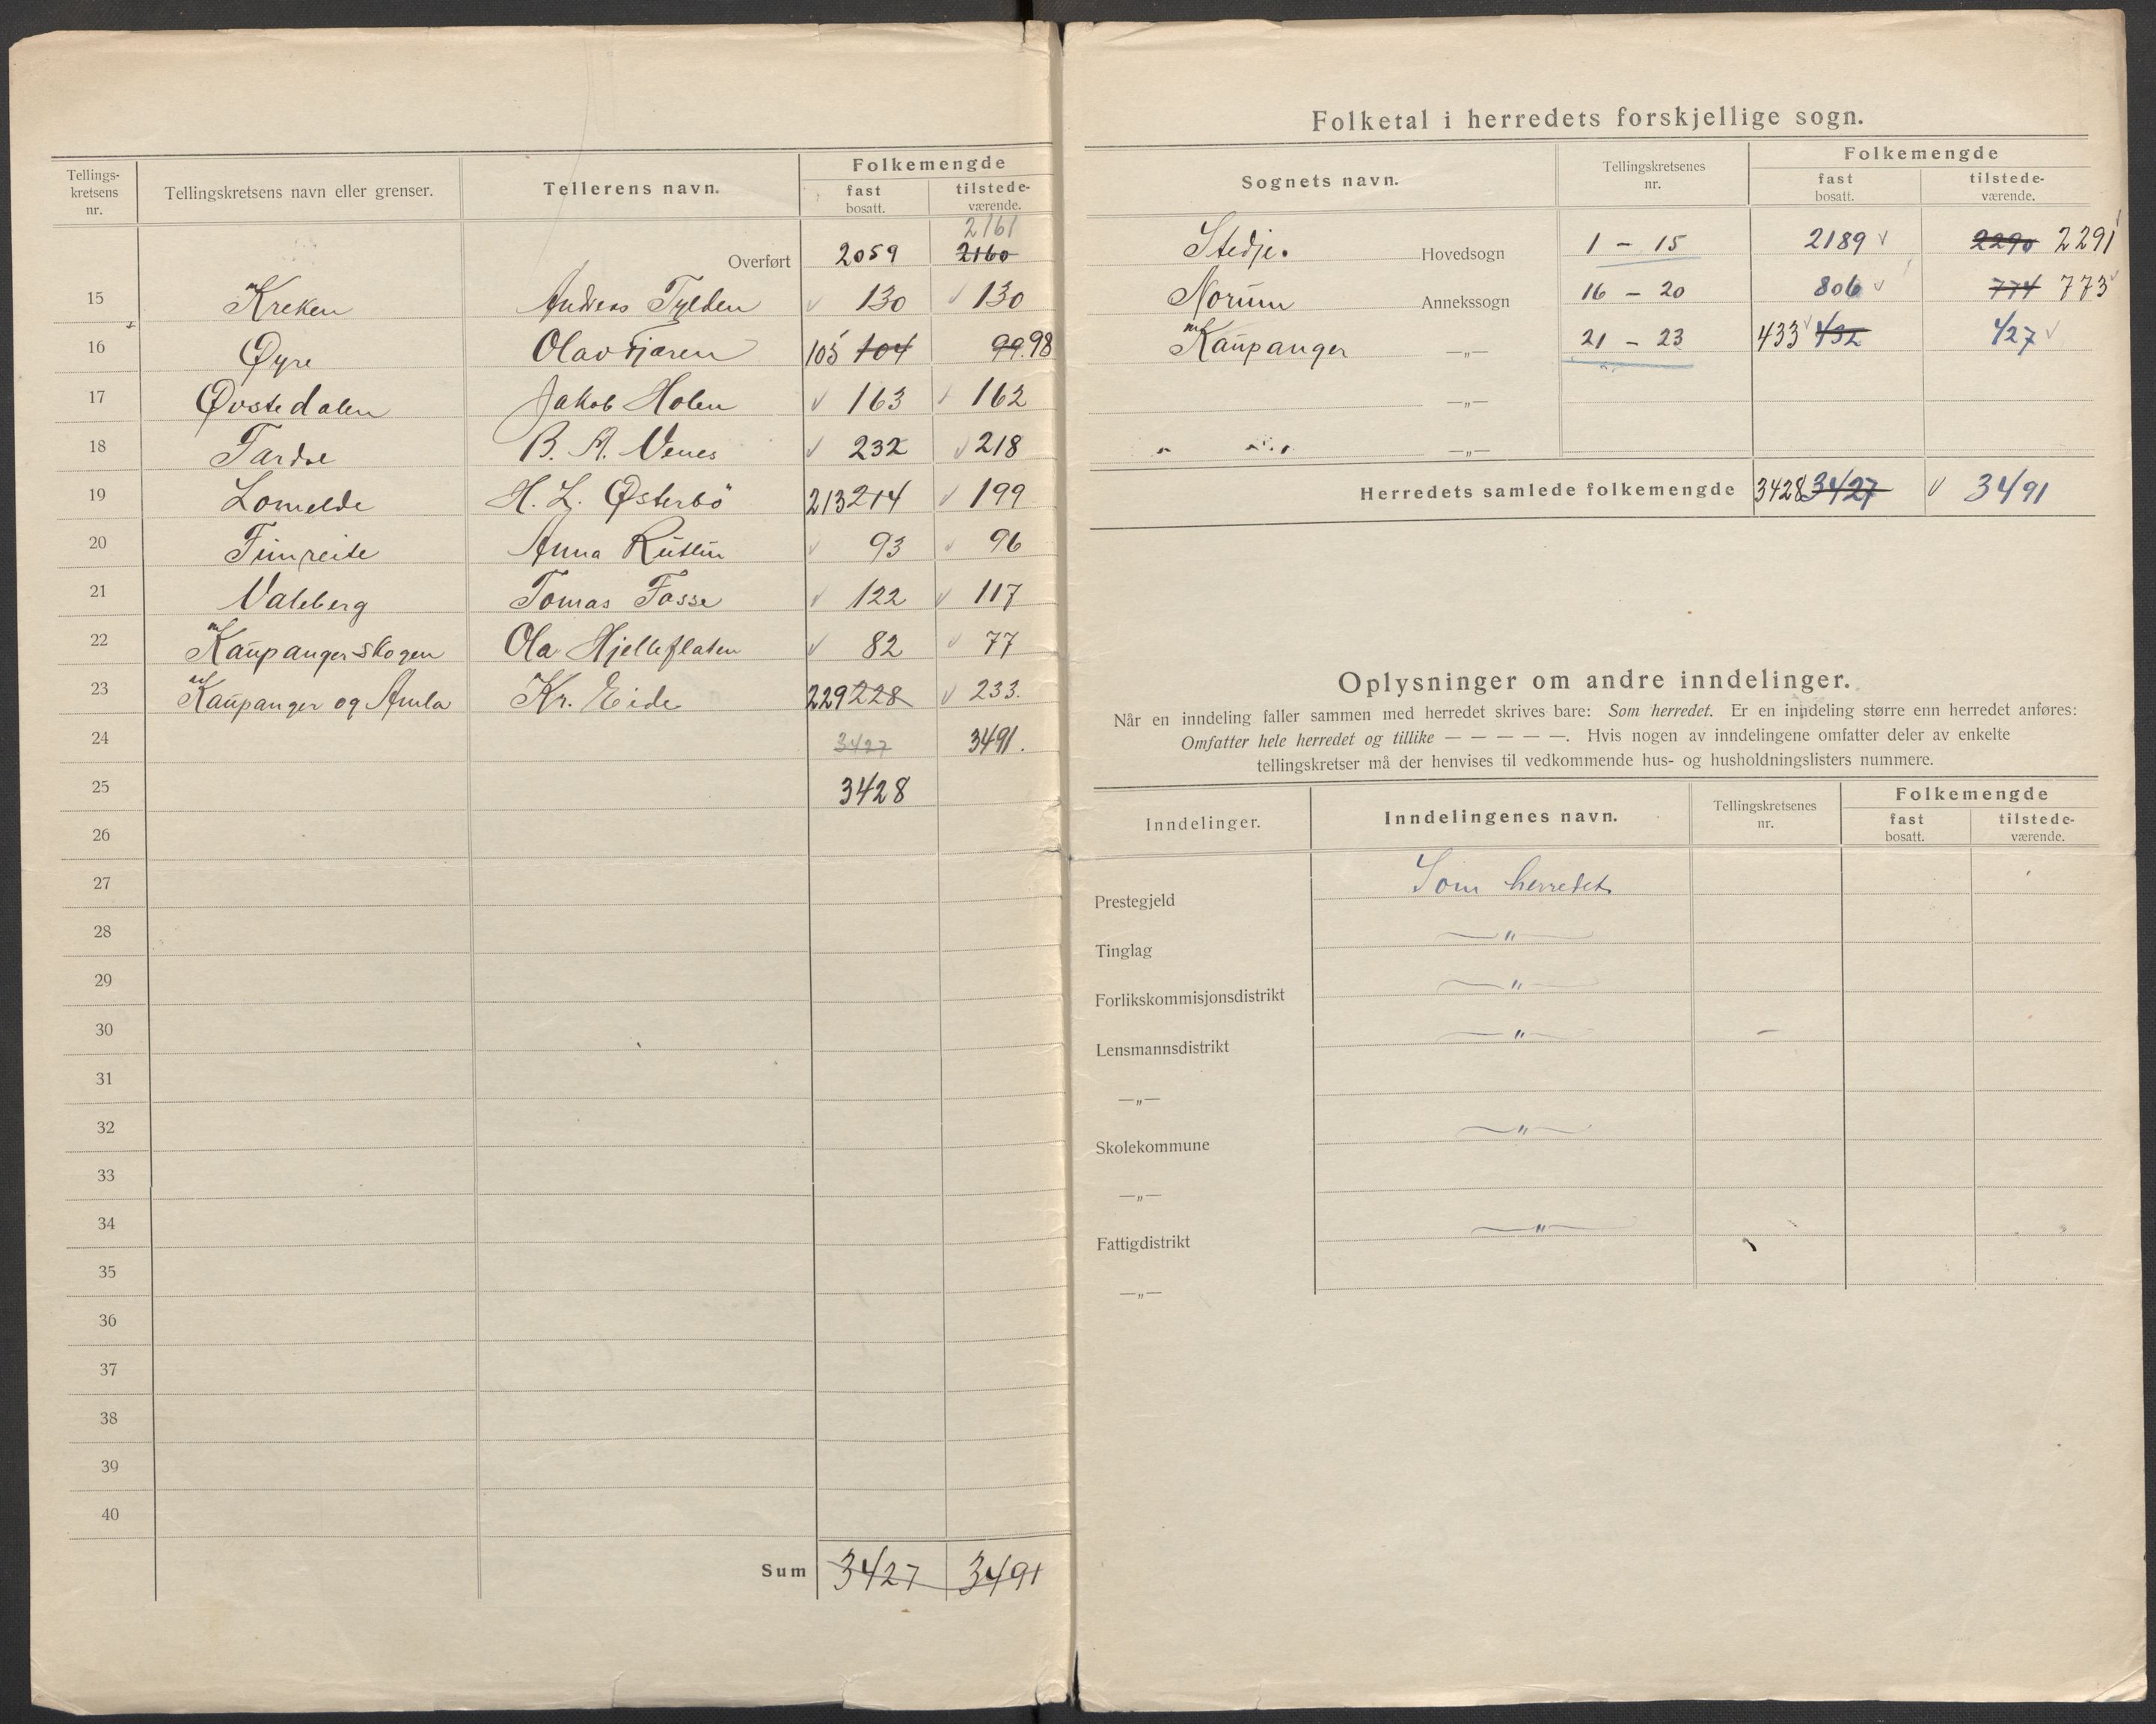 Tellings-kretsens nr. Tellingskretsens navn eller grenser. Tellerens navn. Folkemengde fast bosatt. tilstede-værende.
2161
Overført 2059 2160
15 Kreken Andreas Tylden 130 130
16 Øyre Olav Fjæren 105 104 99. 98
17 Øvstedalen Jakob Holen 163 162
18 Fardal B. A. Venes 232 218
19 Lomelde H. L. Østerbö 213 214 199
20 Fimreite Anna Rutlin 93 96
21 Valeberg Tomas Fosse 122 117
22 Kaupangerskogen Ola Hjelleflaten 82 77
23 Kaupanger og Amla Kr. Eide 229 228 233.
24 3427 3491.
25 3428
26
27
28
29
30
31
32
33
34
35
36
37
38
39
40
Sum 3427 3491
Folketal i herredets forskjellige sogn.
Sognets navn. Tellingskretsenes nr. Folkemengde fast bosatt. tilstede-værende.
Stedje. Hovedsogn 1 - 15 2189 2290 2291
Norum Annekssogn 16 - 20 806 774 773
Kaupanger —„— 21 - 23 433 432 427
—„—
—„—
Herredets samlede folkemengde 3428 3427 3491
Oplysninger om andre inndelinger.
Når en inndeling faller sammen med herredet skrives bare: Som herredet. Er en inndeling større enn herredet anføres:
Omfatter hele herredet og tillike — — — — —. Hvis nogen av inndelingene omfatter deler av enkelte
tellingskretser må der henvises til vedkommende hus- og husholdningslisters nummere.
Inndelinger. Inndelingenes navn. Tellingskretsenes nr. Folkemengde fast bosatt. tilstede-værende.
Prestegjeld Som herredet
Tinglag —„—
Forlikskommisjonsdistrikt —„—
Lensmannsdistrikt —„— –
—„—
Skolekommune —„—
—„—
Fattigdistrikt —„—
—„—